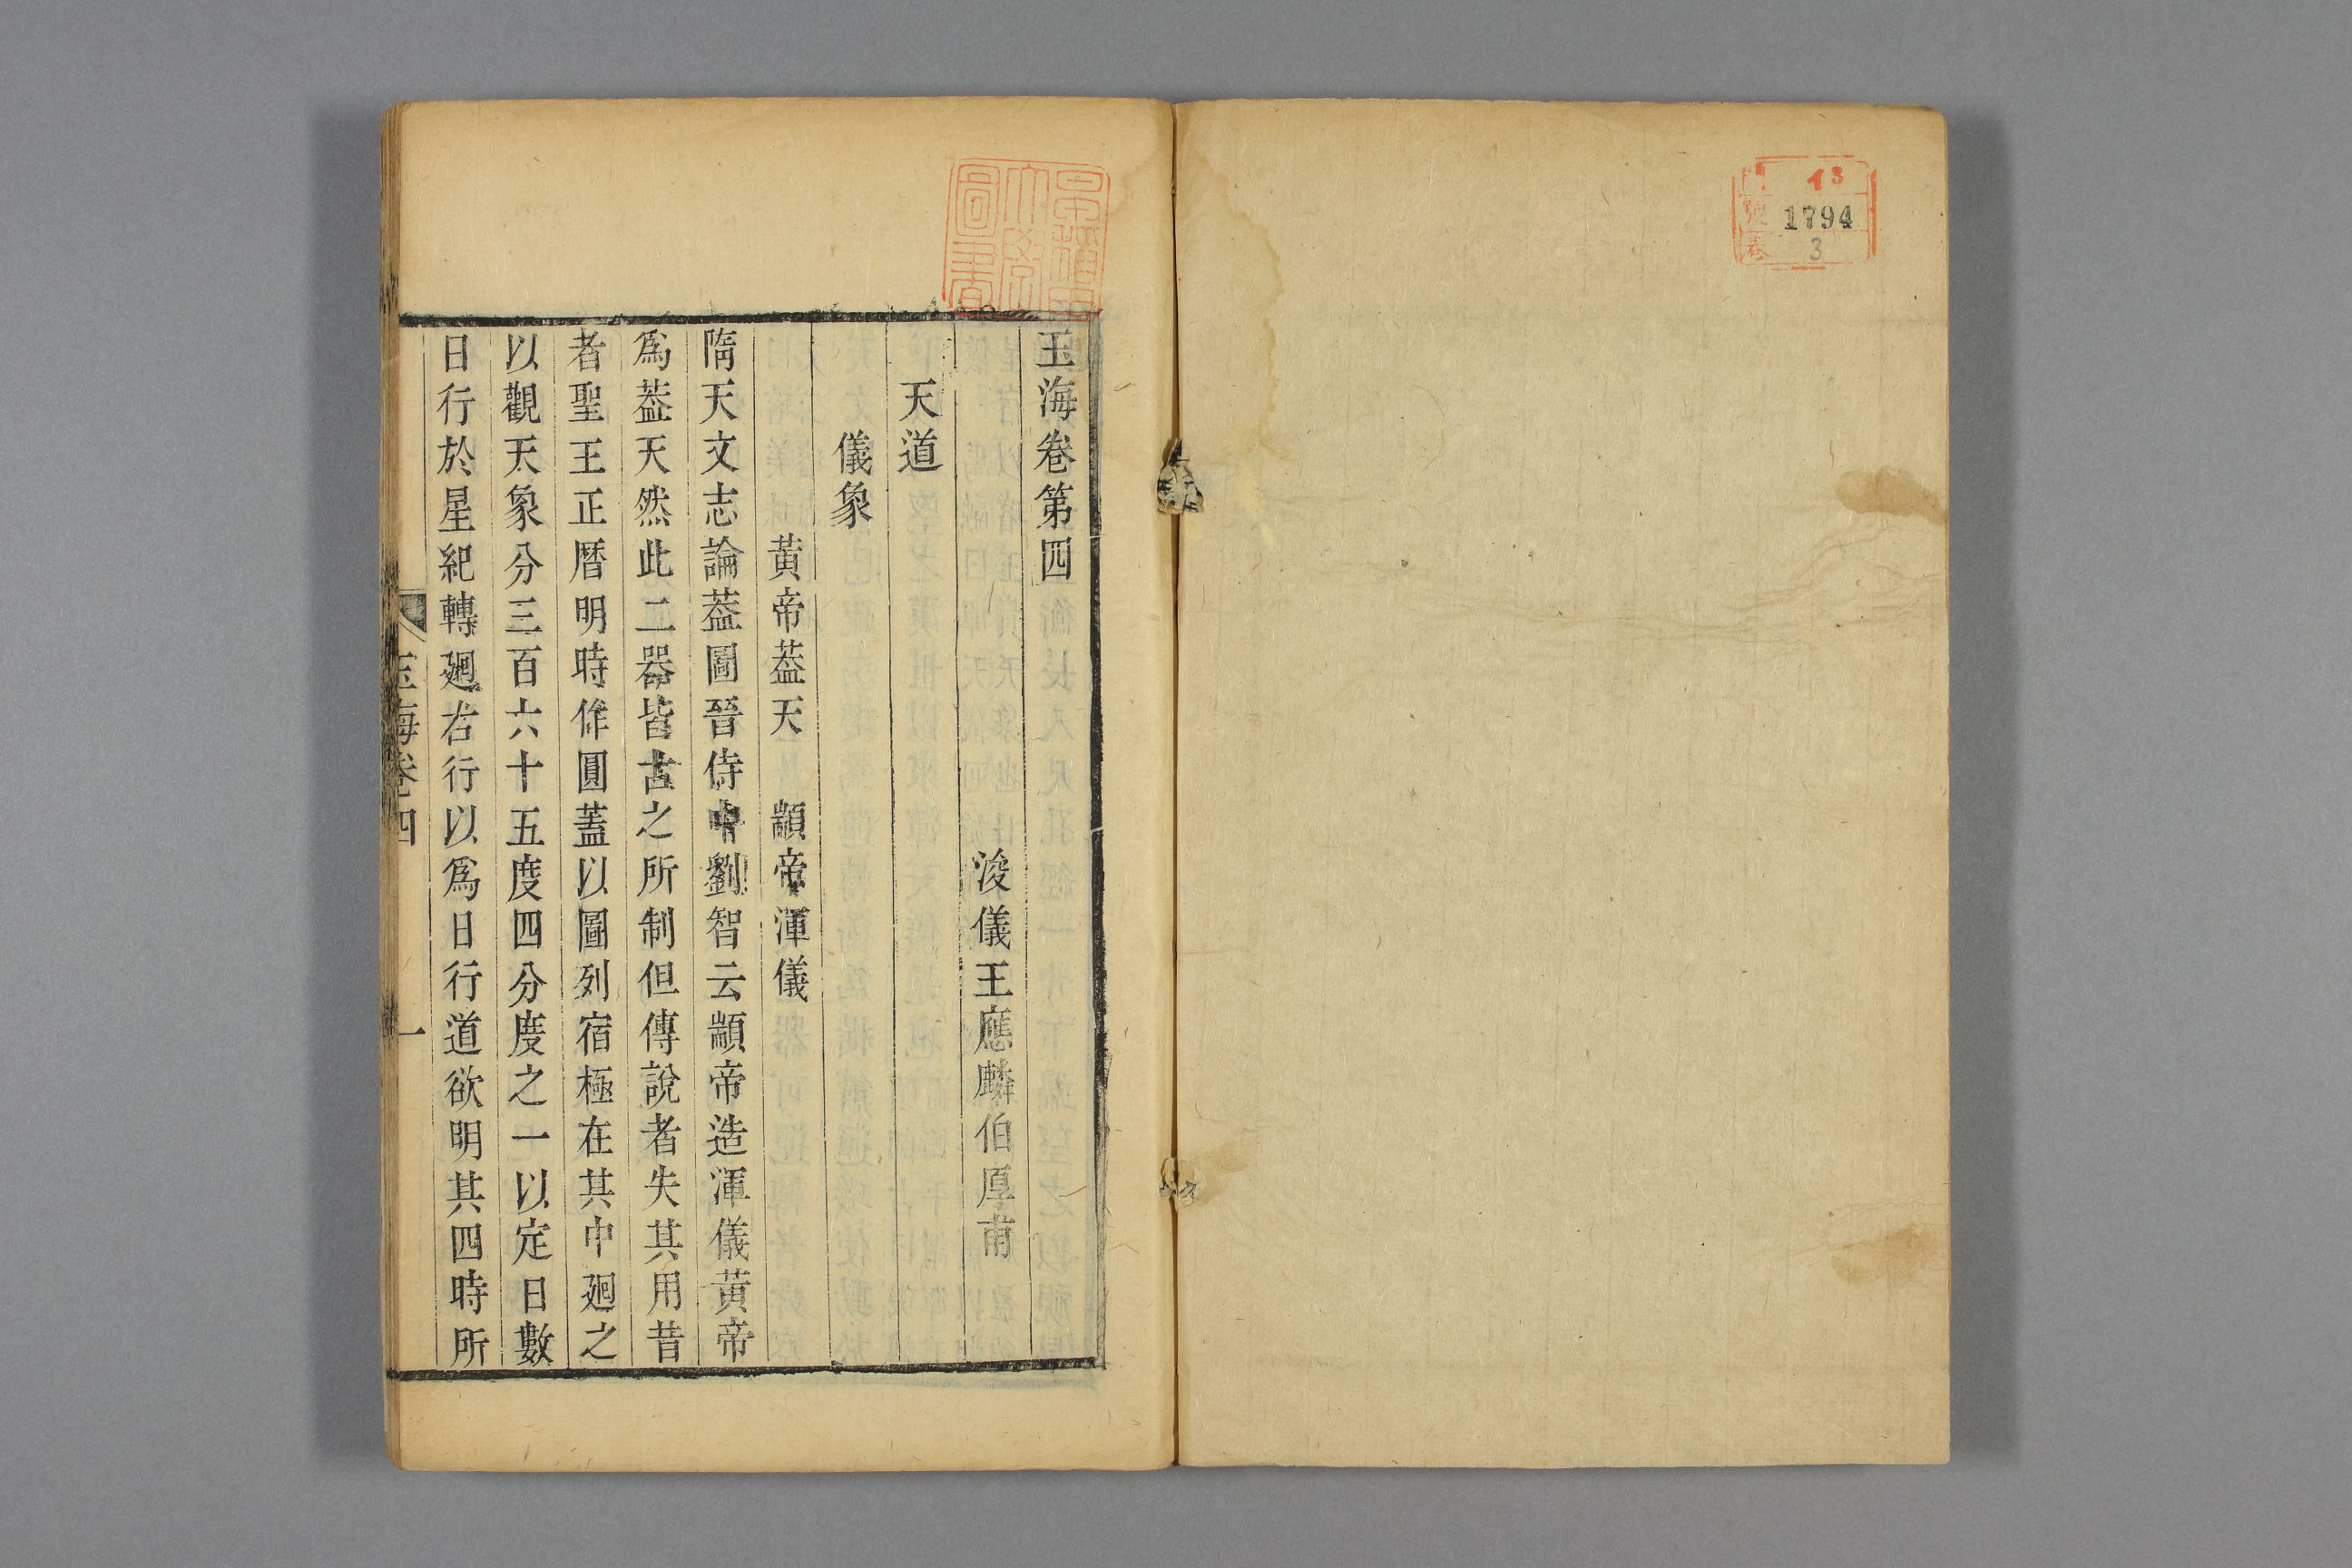 13
號 1794
卷 3
早稲田
大學
圖書
玉海卷第四
浚儀王應麟伯厚甫
天道
儀象
黃帝葢天 顓帝渾儀
隋天文志論葢圖晉侍中劉智云顓帝造渾儀黃帝
爲葢天然此二器皆古之所制但傳說者失其用昔
者聖王正曆明時作圓蓋以圖列宿極在其中廻之
以觀天象分三百六十五度四分度之一以定日數
日行於星紀轉廻右行以爲日行道欲明其四時所
玉海卷四
一